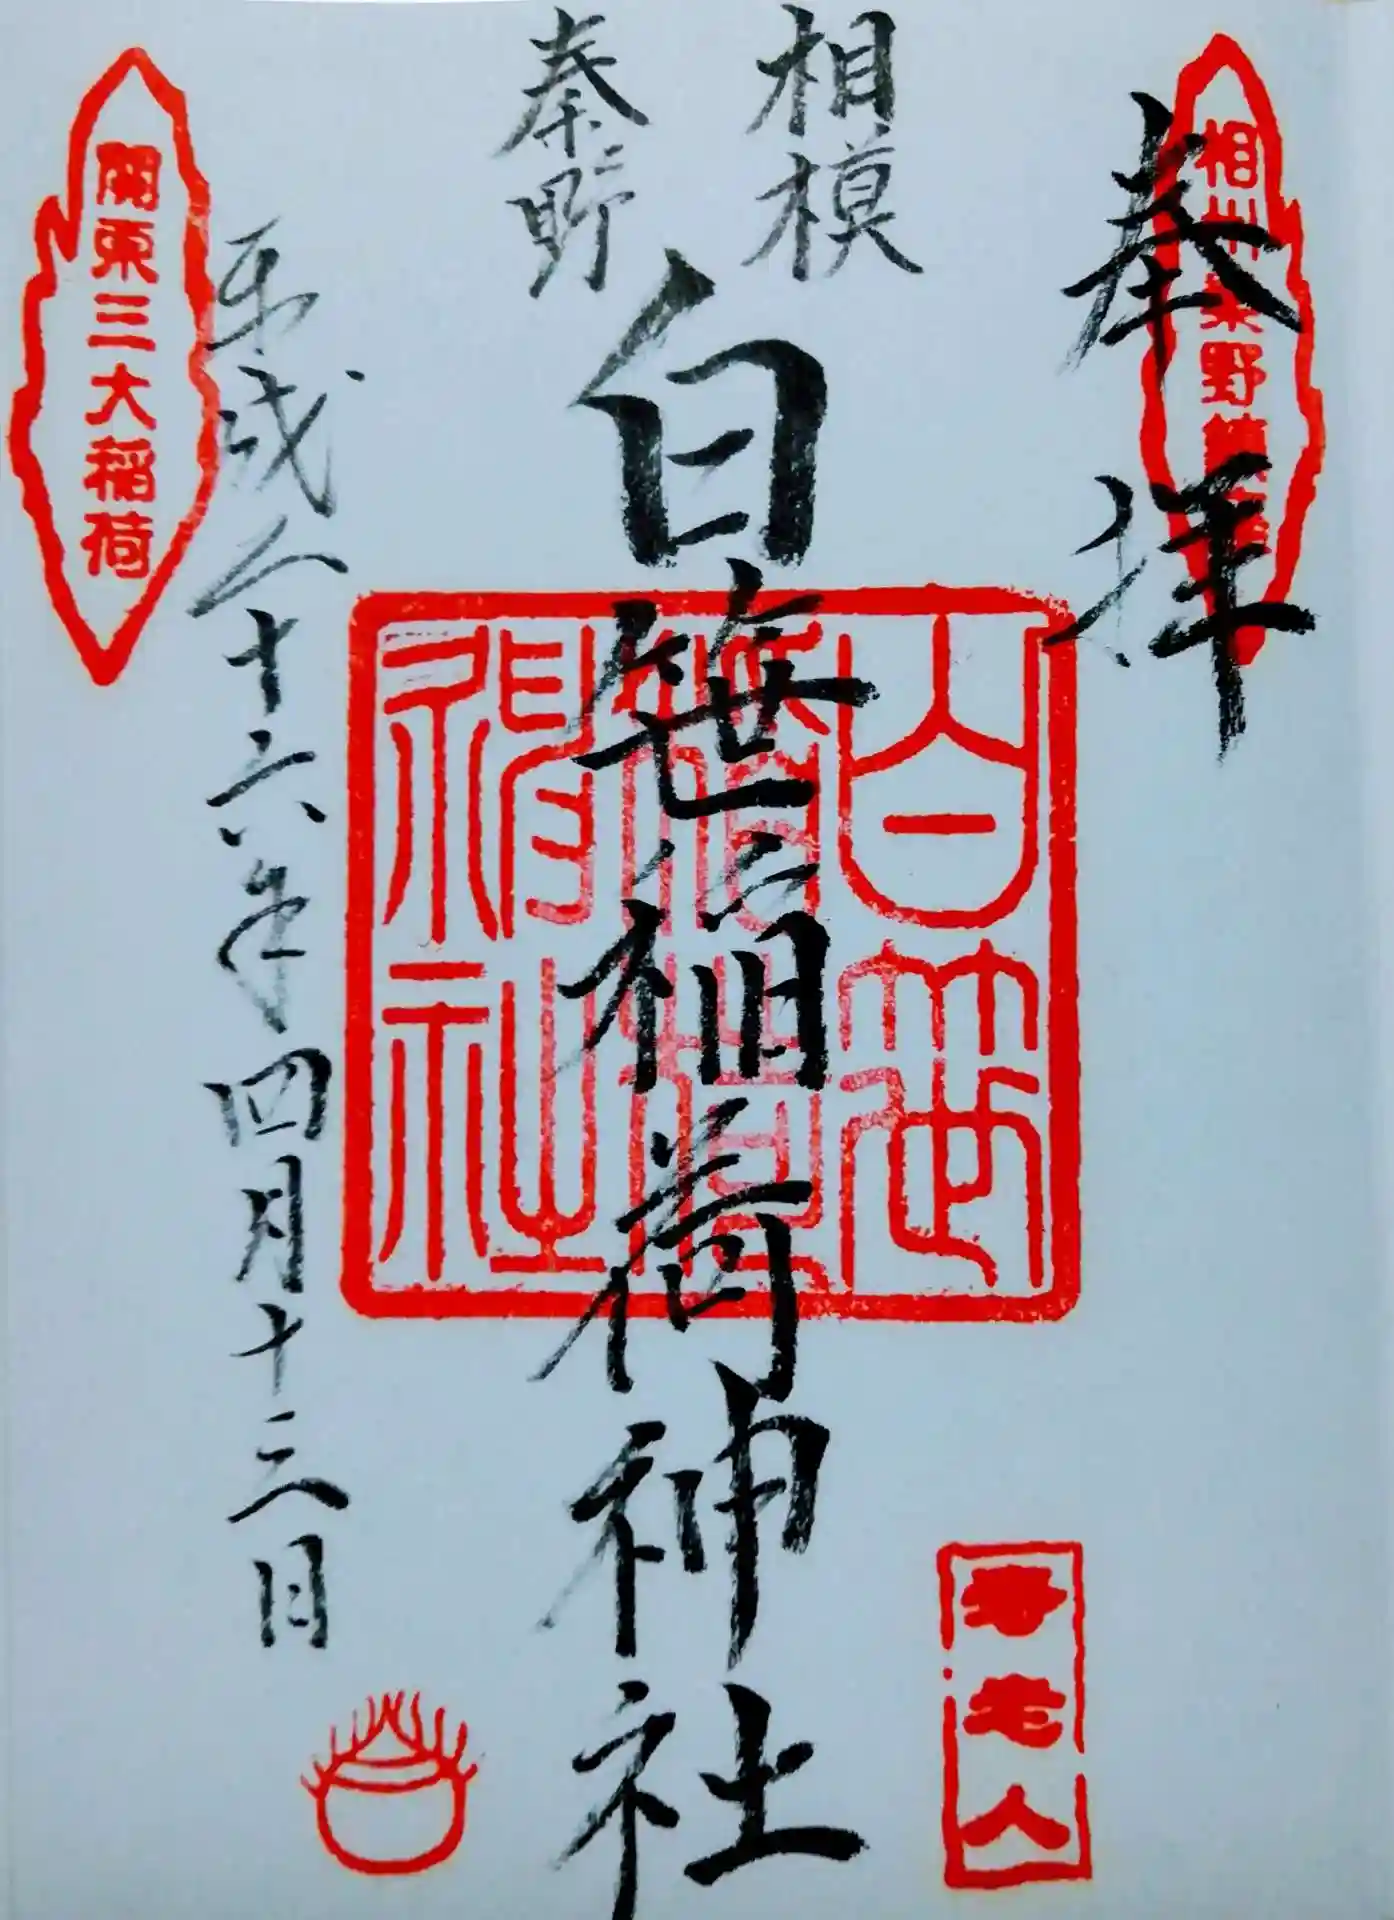 奉拝
相模
秦野
白笹稲荷神社
平成二十六年四月十三日
関東三大稲荷
白笹稲荷神社
寿老人